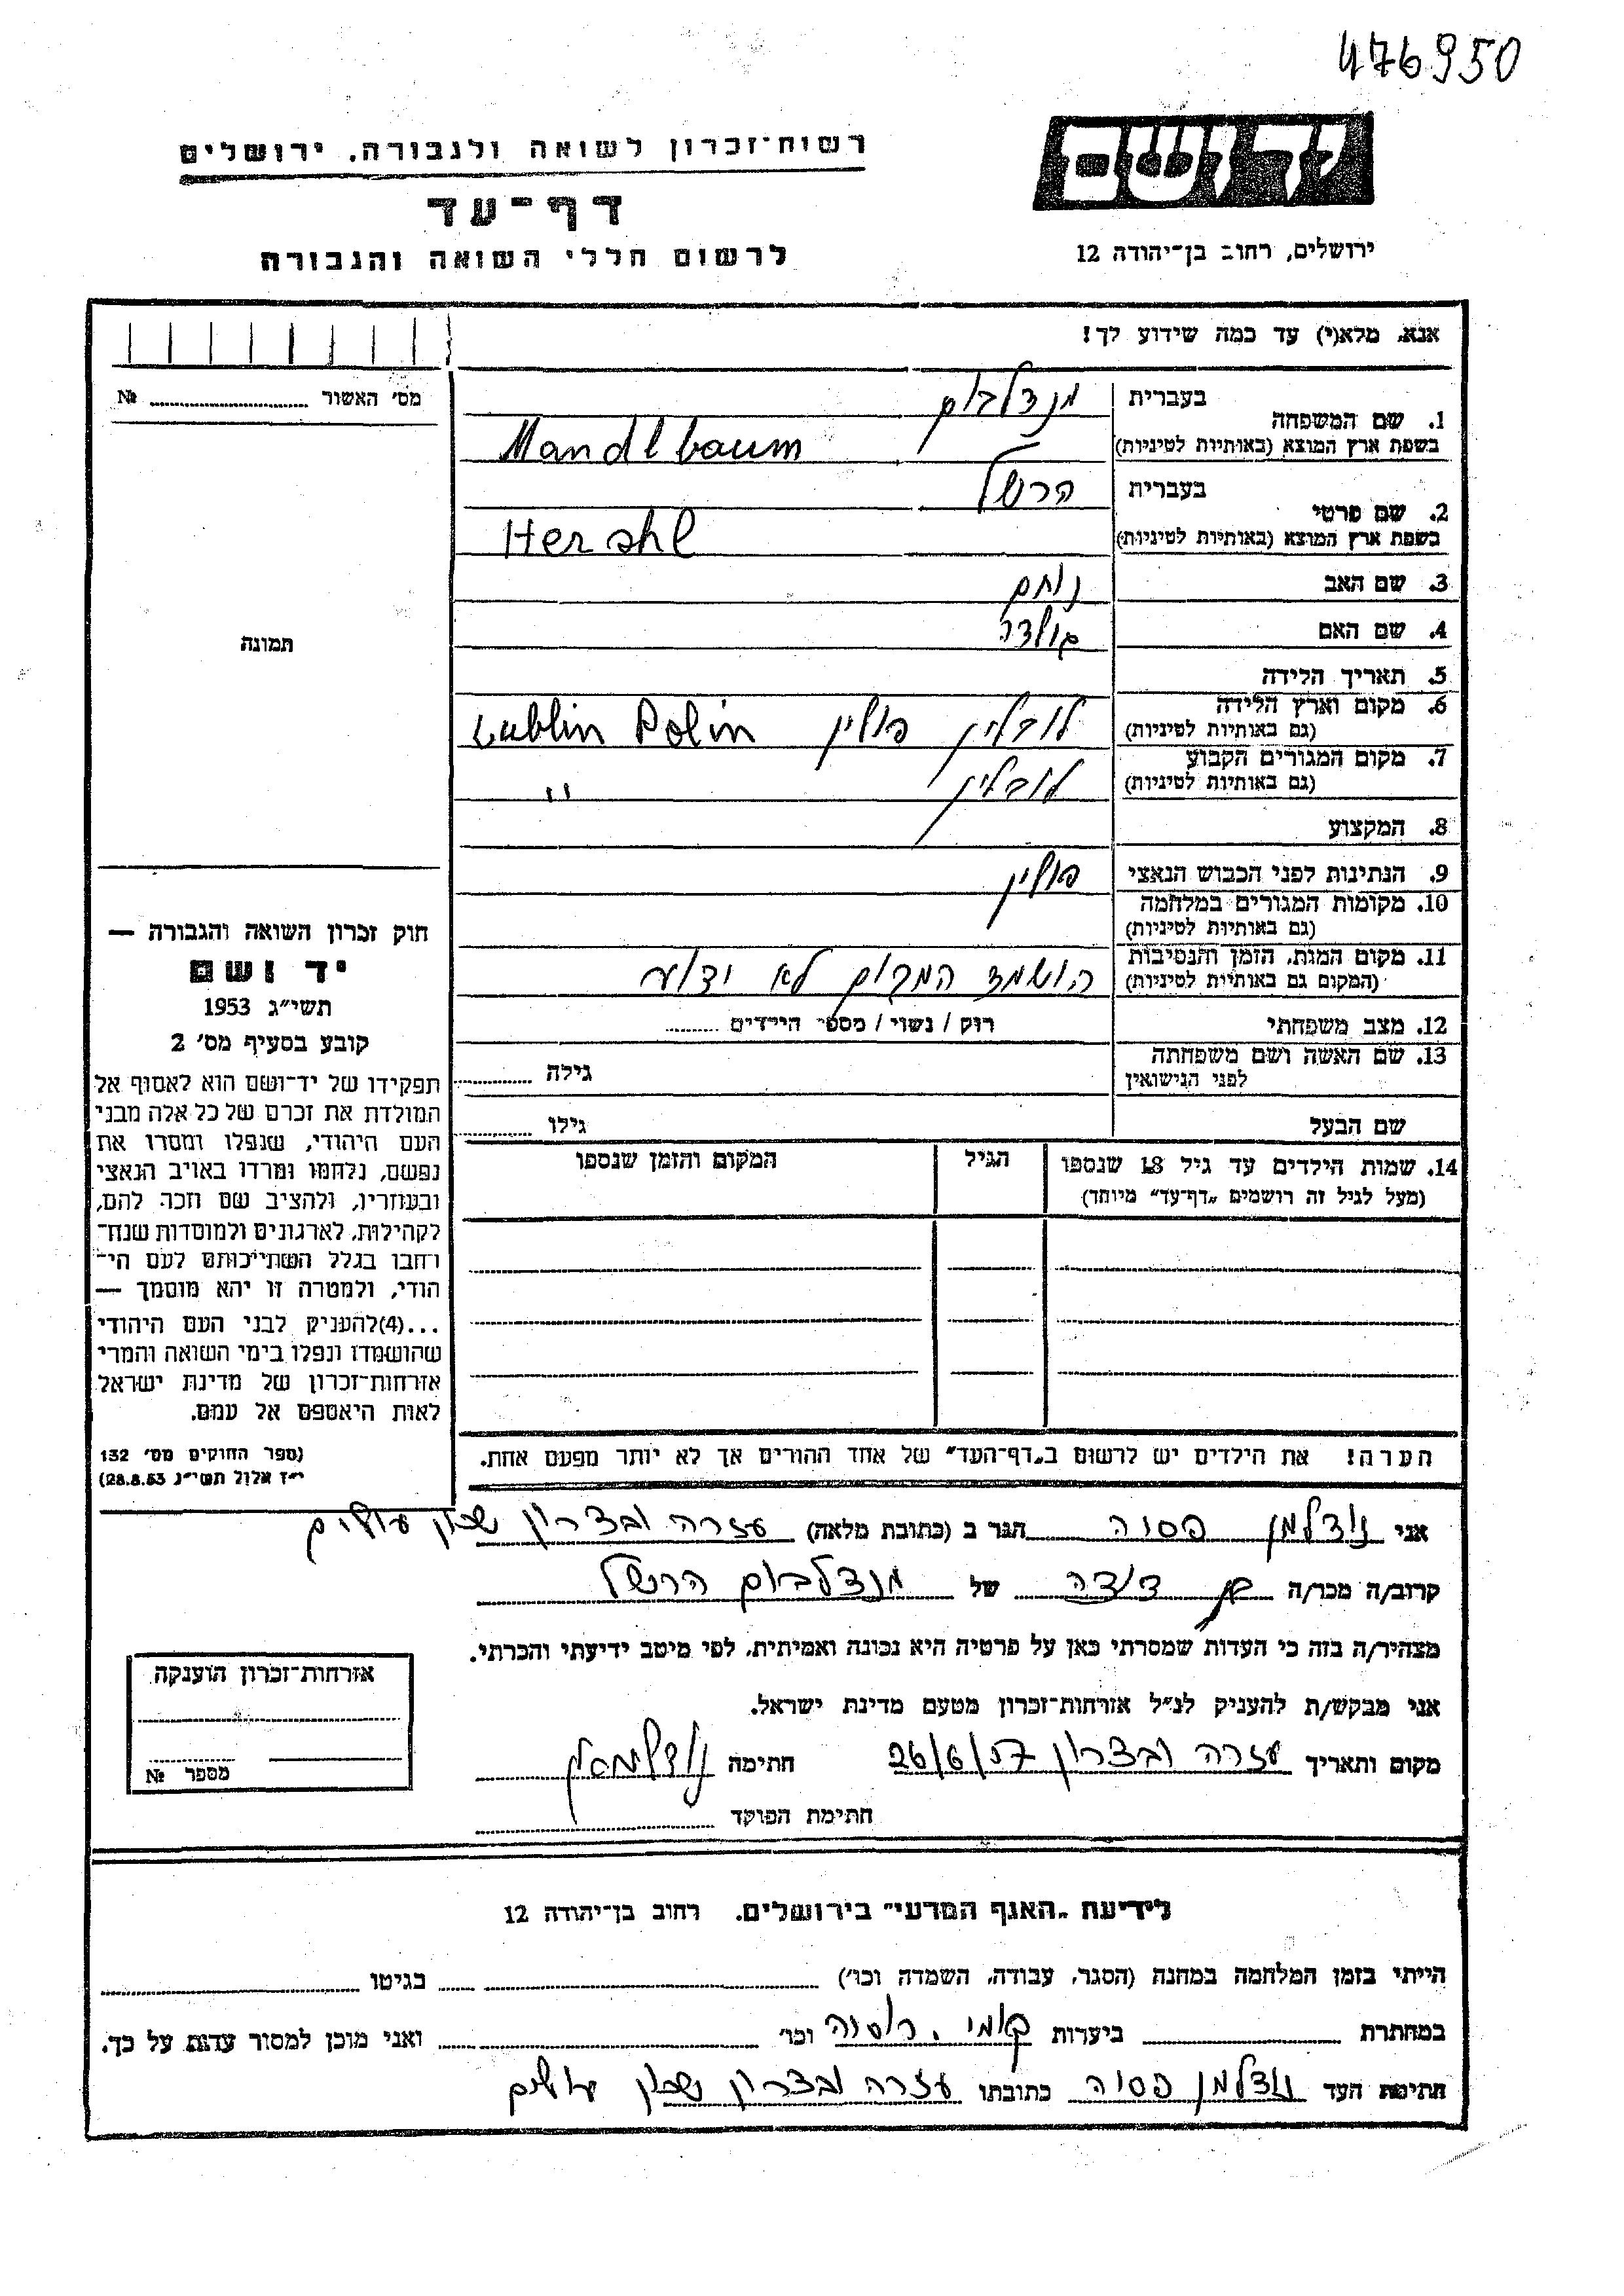 476950
יד ושם
ירושלים, רחוב בן־יהודה 12
רשות־זכרון לשואה ולגבורה, ירושלים
דף־עד
לרשום חללי השואה והגבורה
אנא, מלא(י) עד כמה שידוע לך!
מס׳ האשור № ........
1. שם המשפחה
בעברית מנדלבוים
בשפת ארץ המוצא (באותיות לטיניות) Mandlbaum
2. שם פרטי
בעברית הרשל
בשפת ארץ המוצא (באותיות לטיניות) Hershl
3. שם האב נחום
4. שם האם גולדה
5. תאריך הלידה
6. מקום וארץ הלידה
(גם באותיות לטיניות) לובלין פולין Lublin Polin
7. מקום המגורים הקבוע
(גם באותיות לטיניות) לובלין "
8. המקצוע
9. הנתינות לפני הכבוש הנאצי פולין
10. מקומות המגורים במלחמה
(גם באותיות לטיניות)
11. מקום המות, הזמן והנסיבות
(המקום גם באותיות לטיניות) הושמד המקום לא ידוע
12. מצב משפחתי רווק / נשוי / מספר הילדים ........
13. שם האשה ושם משפחתה
לפני הנישואין גילה ........
שם הבעל גילו ........
14. שמות הילדים עד גיל 18 שנספו
(מעל לגיל זה רושמים „דף־עד״ מיוחד)
הגיל
המקום והזמן שנספו
הערה! את הילדים יש לרשום ב„דף־העד״ של אחד ההורים אך לא יותר מפעם אחת.
תמונה
חוק זכרון השואה והגבורה —
יד ושם
תשי״ג 1953
קובע בסעיף מס׳ 2
תפקידו של יד־ושם הוא לאסוף אל
המולדת את זכרם של כל אלה מבני
העם היהודי, שנפלו ומסרו את
נפשם, נלחמו ומרדו באויב הנאצי
ובעוזריו, ולהציב שם וזכר להם,
לקהילות, לארגונים ולמוסדות שנח־
רחבו בגלל השתייכותם לעם הי־
הודי, ולמטרה זו יהא מוסמך —
...(4)להעניק לבני העם היהודי
שהושמדו ונפלו בימי השואה והמרי
אזרחות־זכרון של מדינת ישראל
לאות היאספם אל עמם.
(ספר החוקים מס׳ 132
י״ז אלול תשי״ג 28.8.53)
אני נודלמן פסוה הגר ב (כתובת מלאה) עזרה ובצרון שכון עולים
קרוב/ה מכר/ה בן דודה של מנדלבוים הרשל
מצהיר/ה בזה כי העדות שמסרתי כאן על פרטיה היא נכונה ואמיתית, לפי מיטב ידיעתי והכרתי.
אני מבקש/ת להעניק לנ״ל אזרחות־זכרון מטעם מדינת ישראל.
מקום ותאריך עזרה ובצרון 26/6/57 חתימה
חתימת הפוקד ........
אזרחות־זכרון הוענקה
מספר №
לידיעת „האגף המדעי״ בירושלים. רחוב בן־יהודה 12
הייתי בזמן המלחמה במחנה (הסגר, עבודה, השמדה וכו׳) ........ בגיטו ........
במחתרת ........ ביערות וכו׳ ........ ואני מוכן למסור עדות על כך.
חתימת העד נודלמן פסוה כתובתו עזרה ובצרון שכון עולים